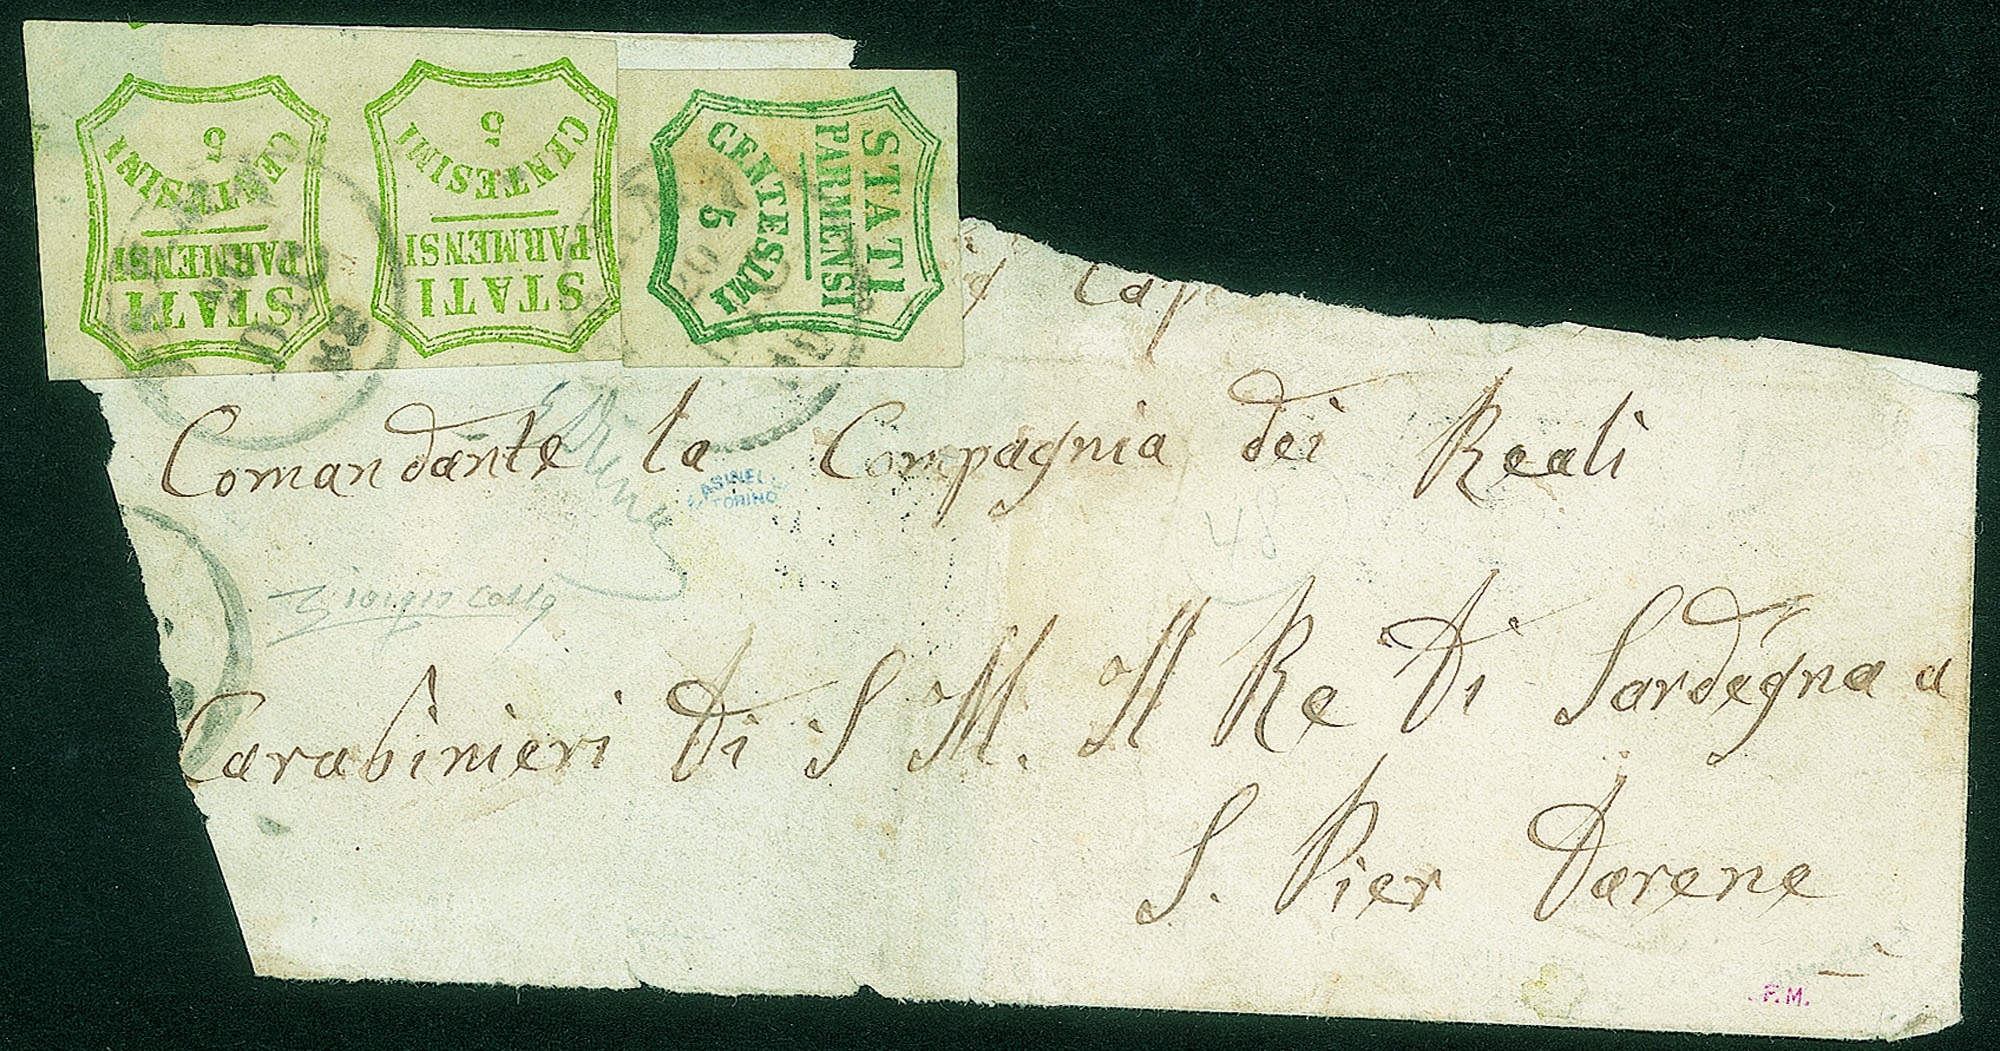 STATI
PARMENSI
CENTESIMI
5
STATI
PARMENSI
CENTESIMI
5
STATI
PARMENSI
CENTESIMI
5
Comandante la Compagnia dei Reali
ASINELLI
TORINO
48
Carabinieri Di S M. Il Re Di Sardegna a
S. Pier Darene
F.M.